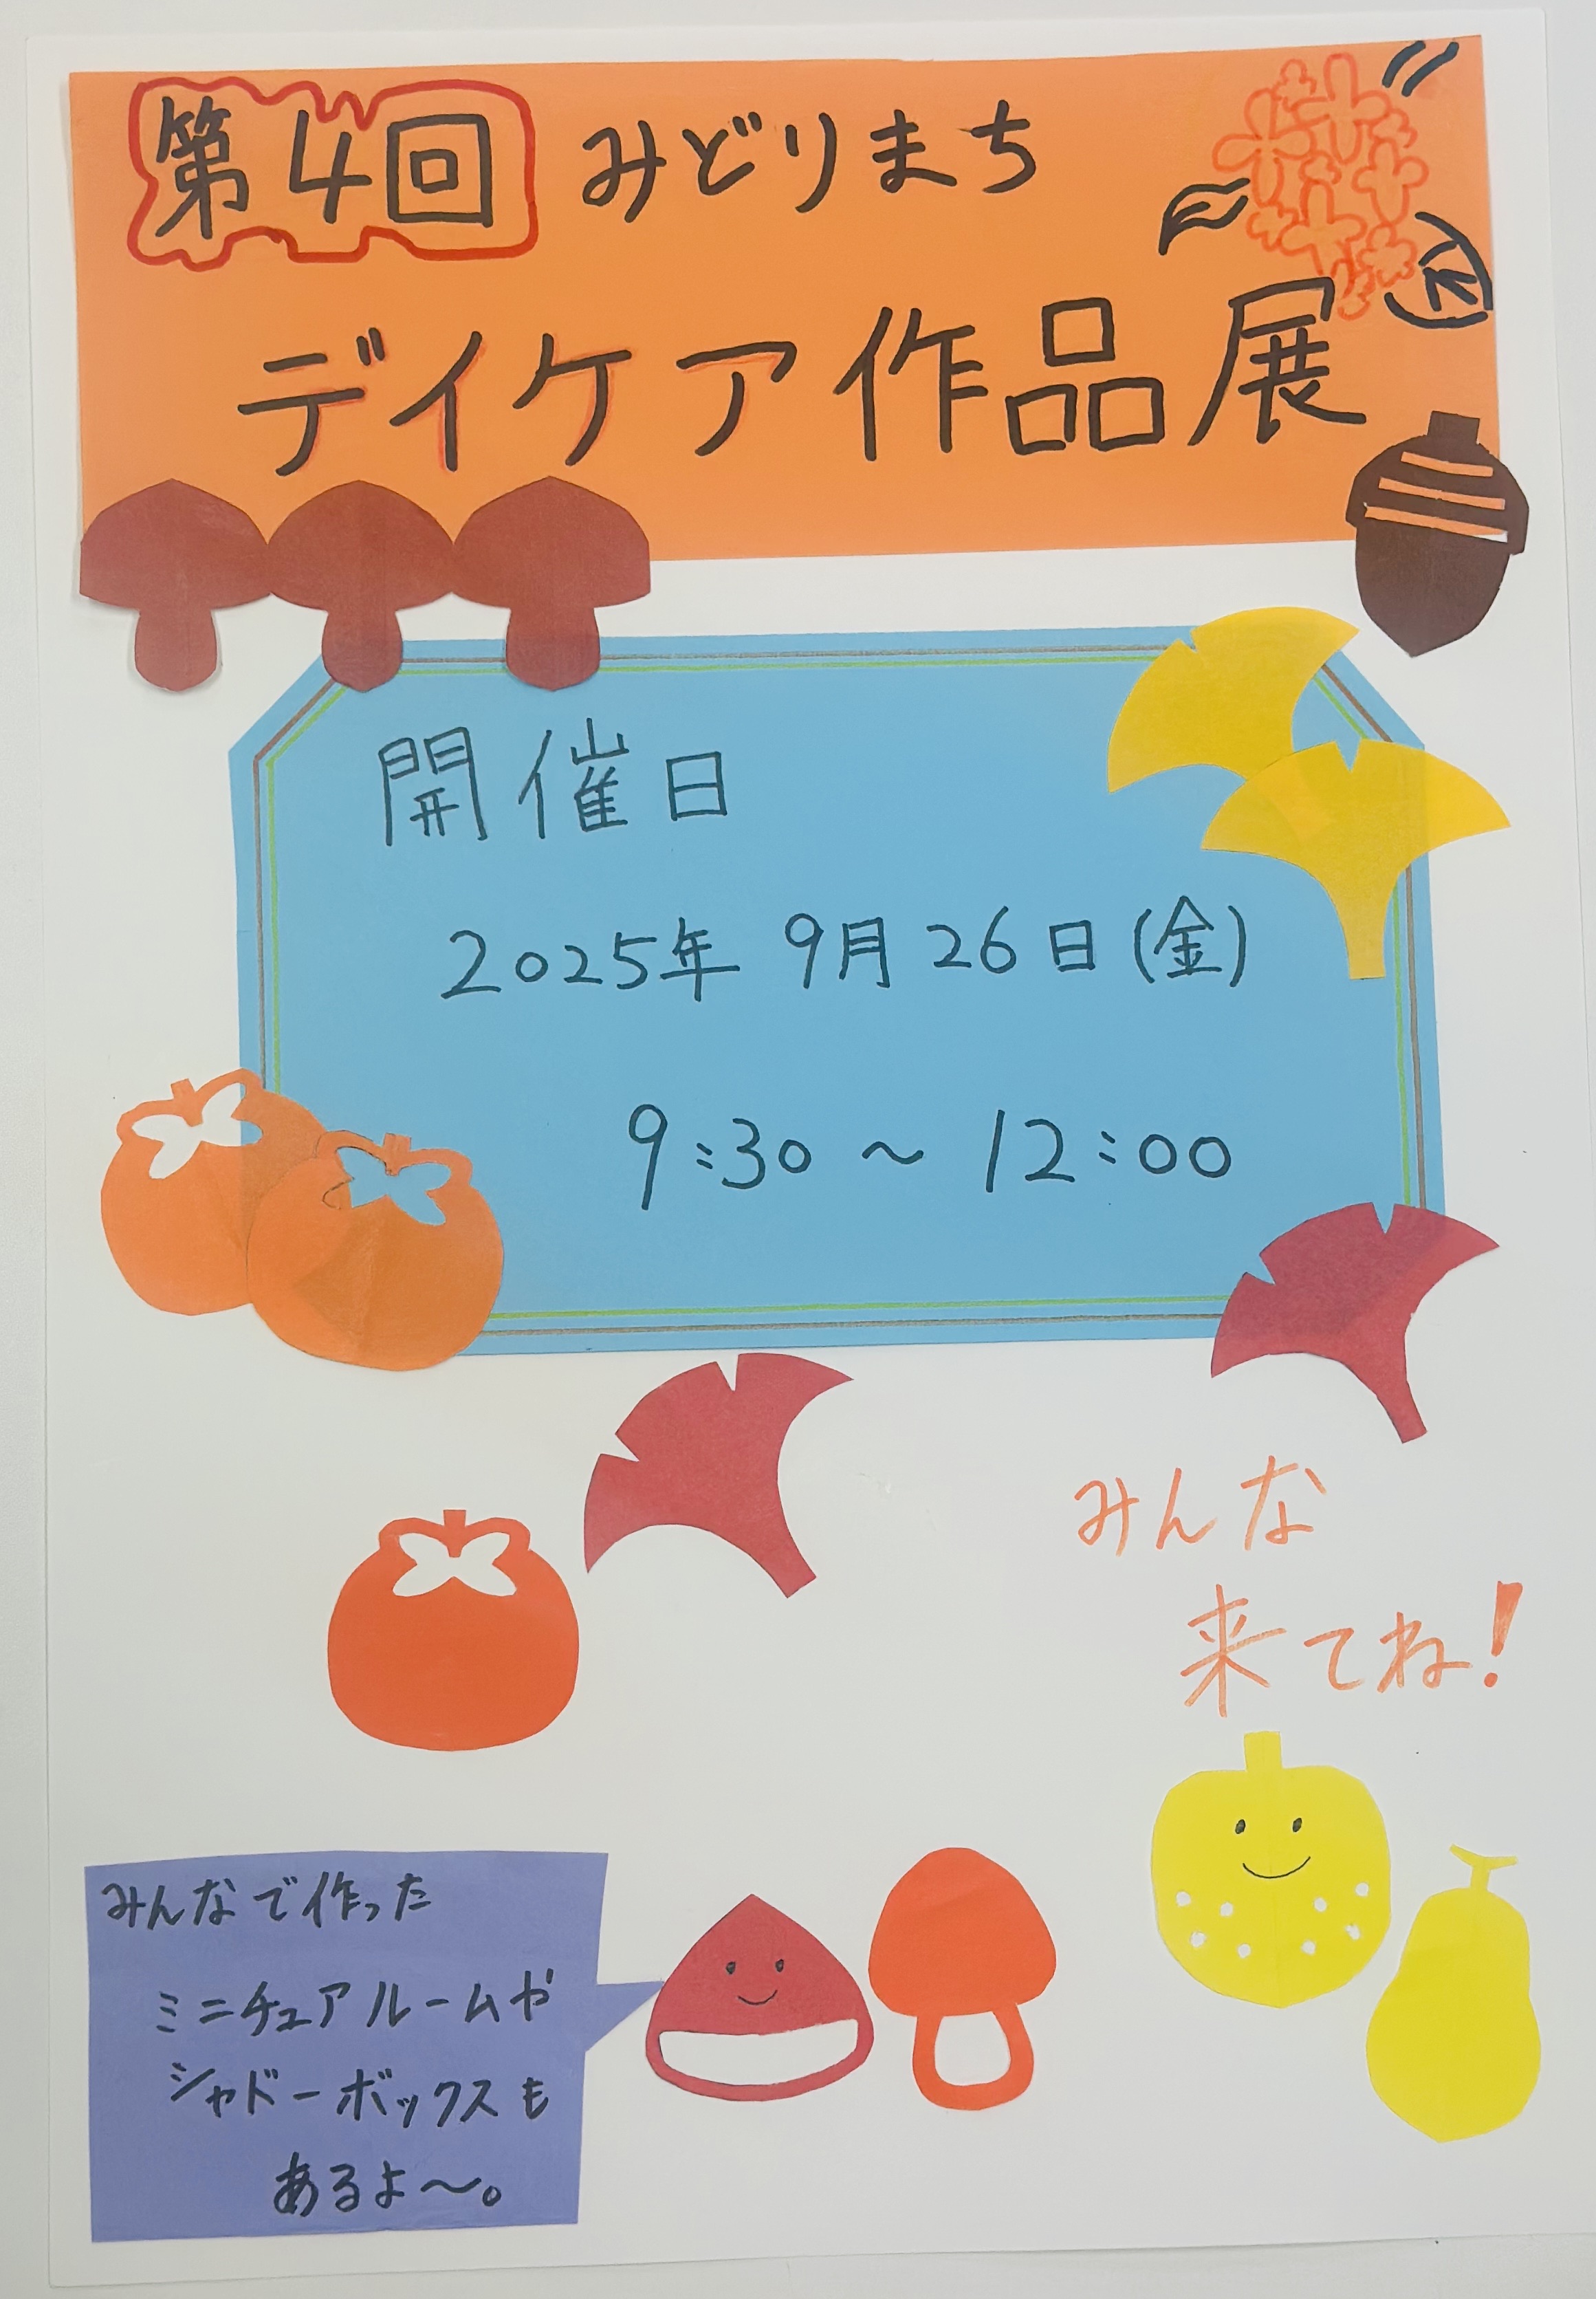 第4回 みどりまち
デイケア作品展
開催日
2025年 9月26日(金)
9:30～12:00
みんな
来てね!
みんなで作った
ミニチュアルームや
シャドーボックスも
あるよ～。